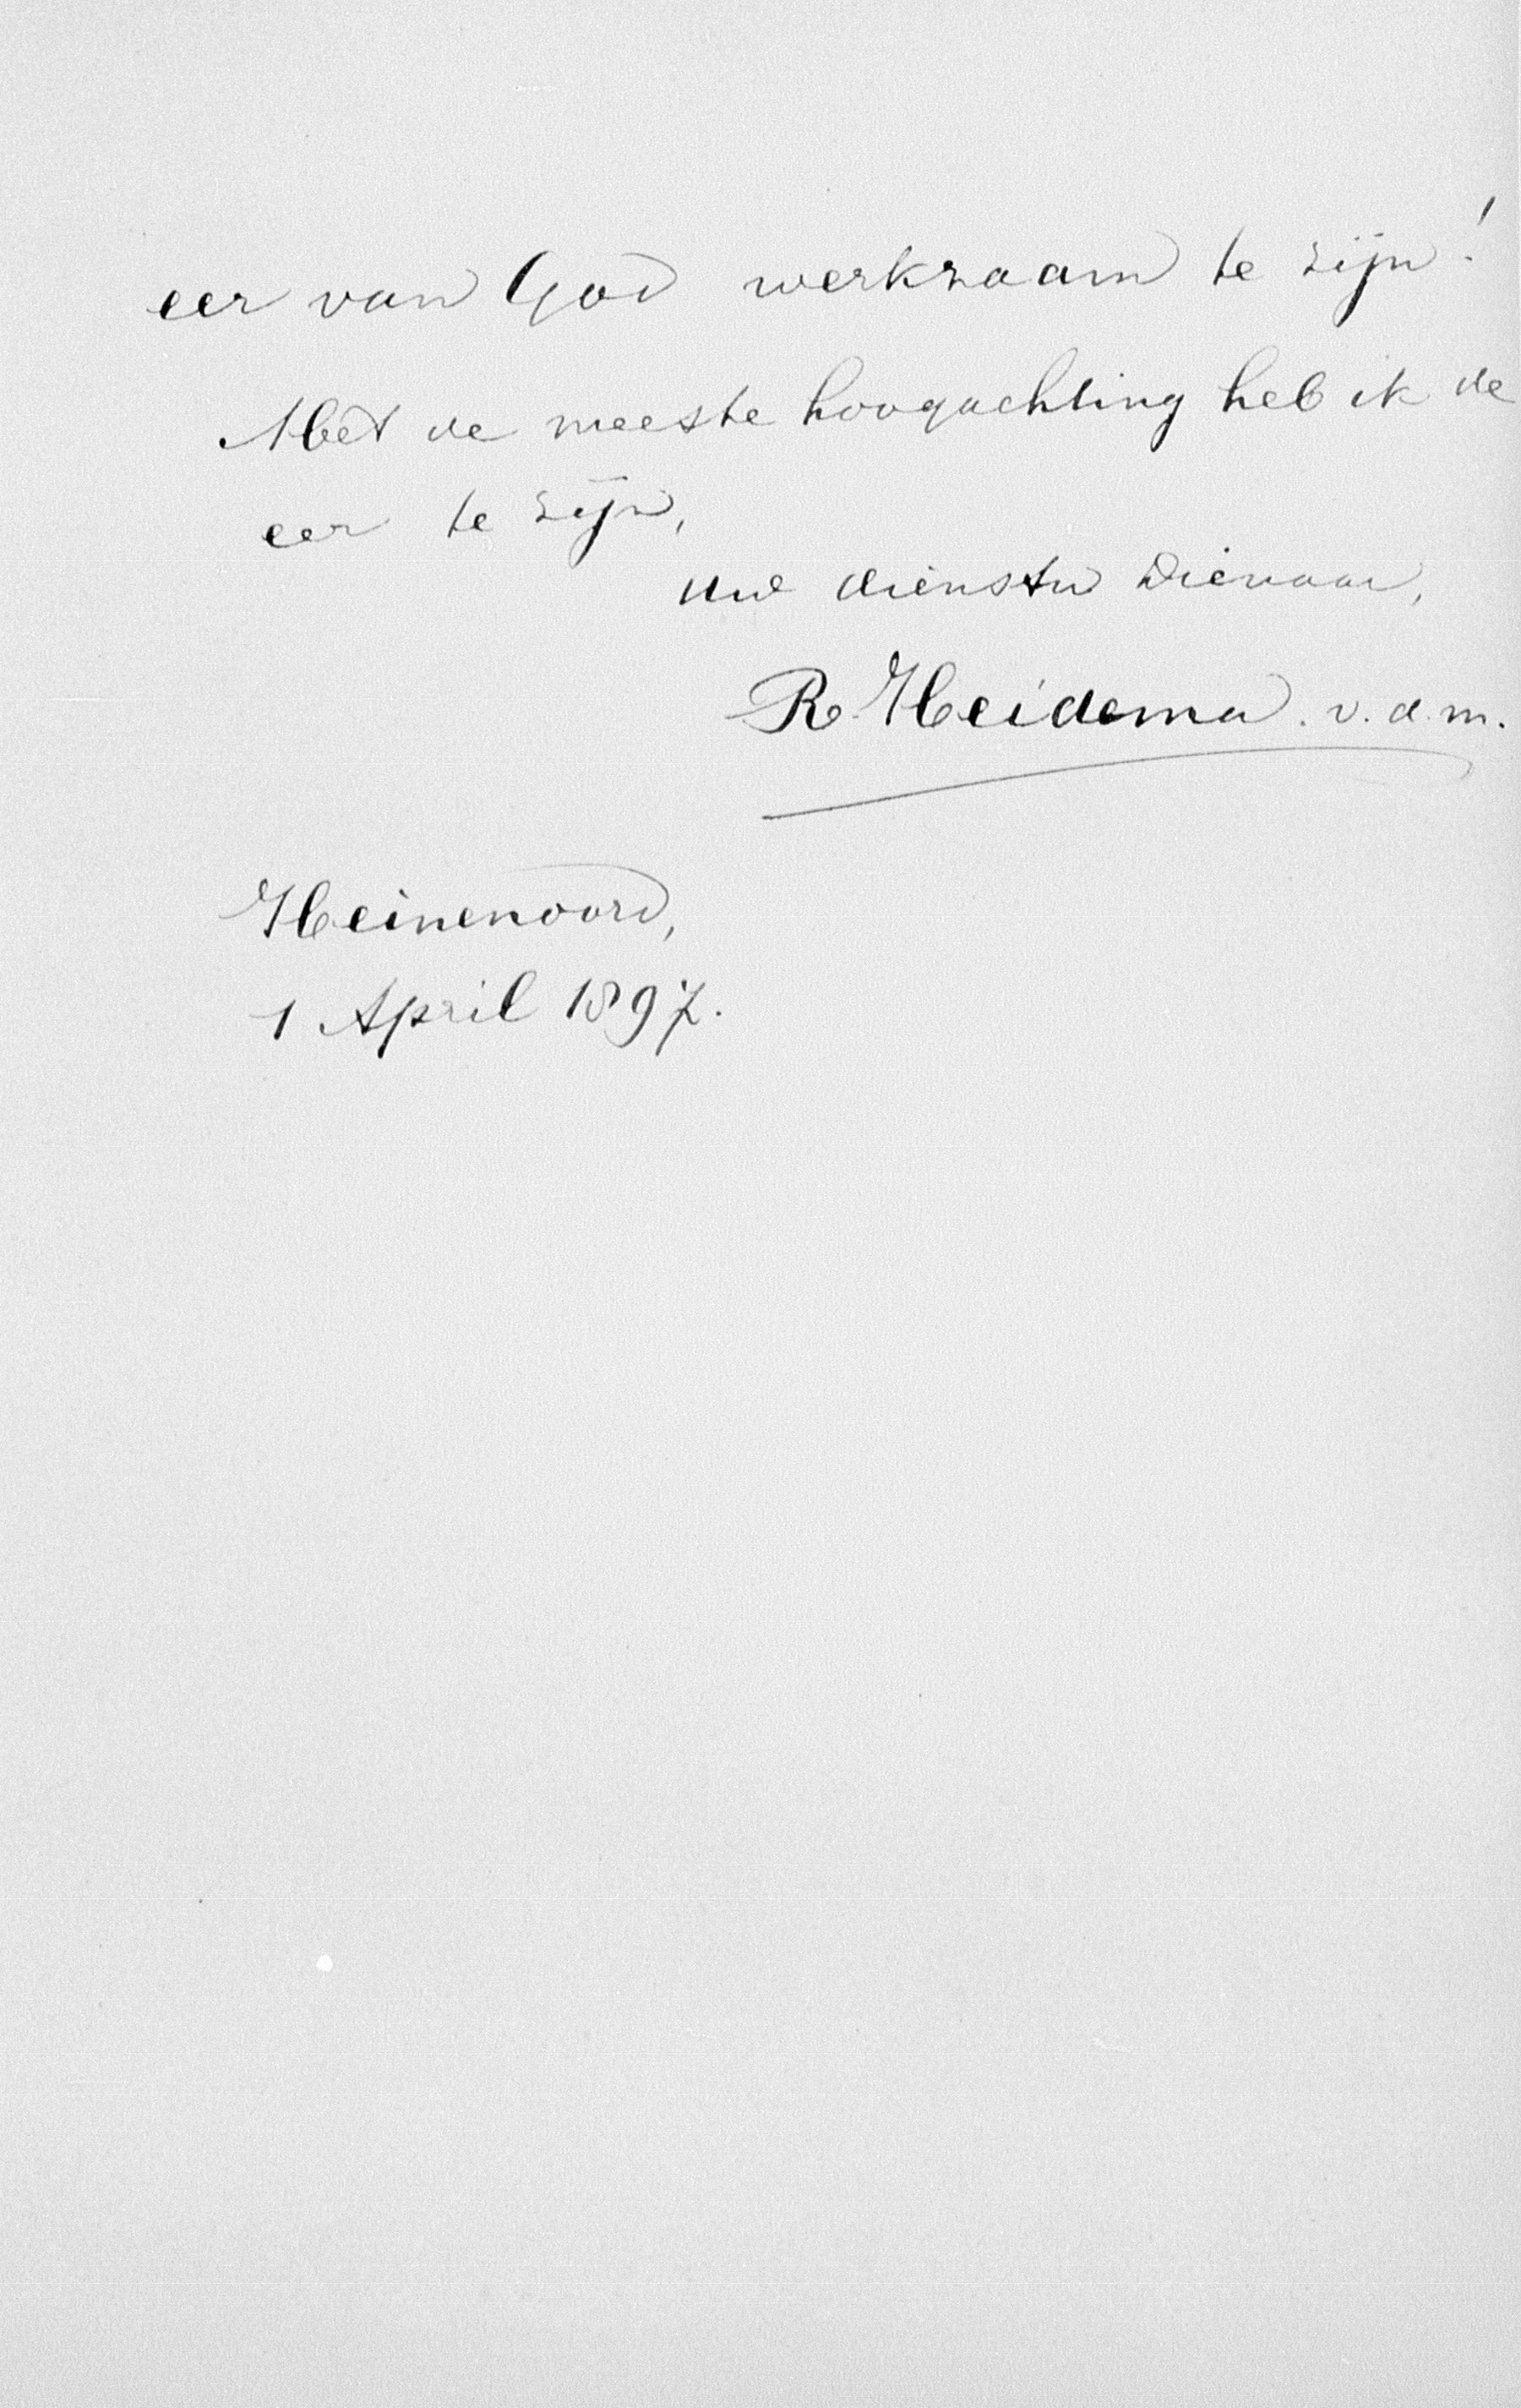 eer van God werkzaam te zijn!
Met de meeste hoogachting heb ik de
eer te zijn,
uw dienstw Dienaar,
R. Heidema. v. d. m.
Heinenoord,
1 April 1897.